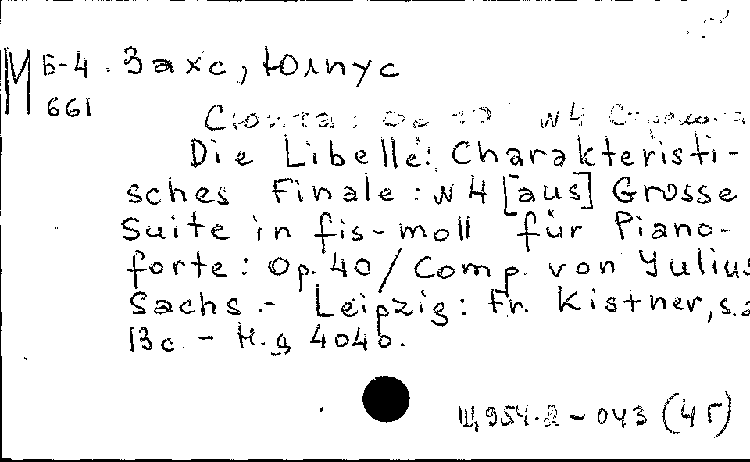 М Б-4 Захс, Юлиус
661
Сюита: Ор. 40 N4 Стрекоза
Die Libelle: Charakteristi-
sches Finale: N4 [aus] Grosse
Suite in fis-moll für Piano-
forte: Op. 40 / Comp. von Yulius
Sachs. - Leipzig: Fr. Kistner, s.a
13 с. - Н.д 4040.
Щ954.2-043 (4Г)